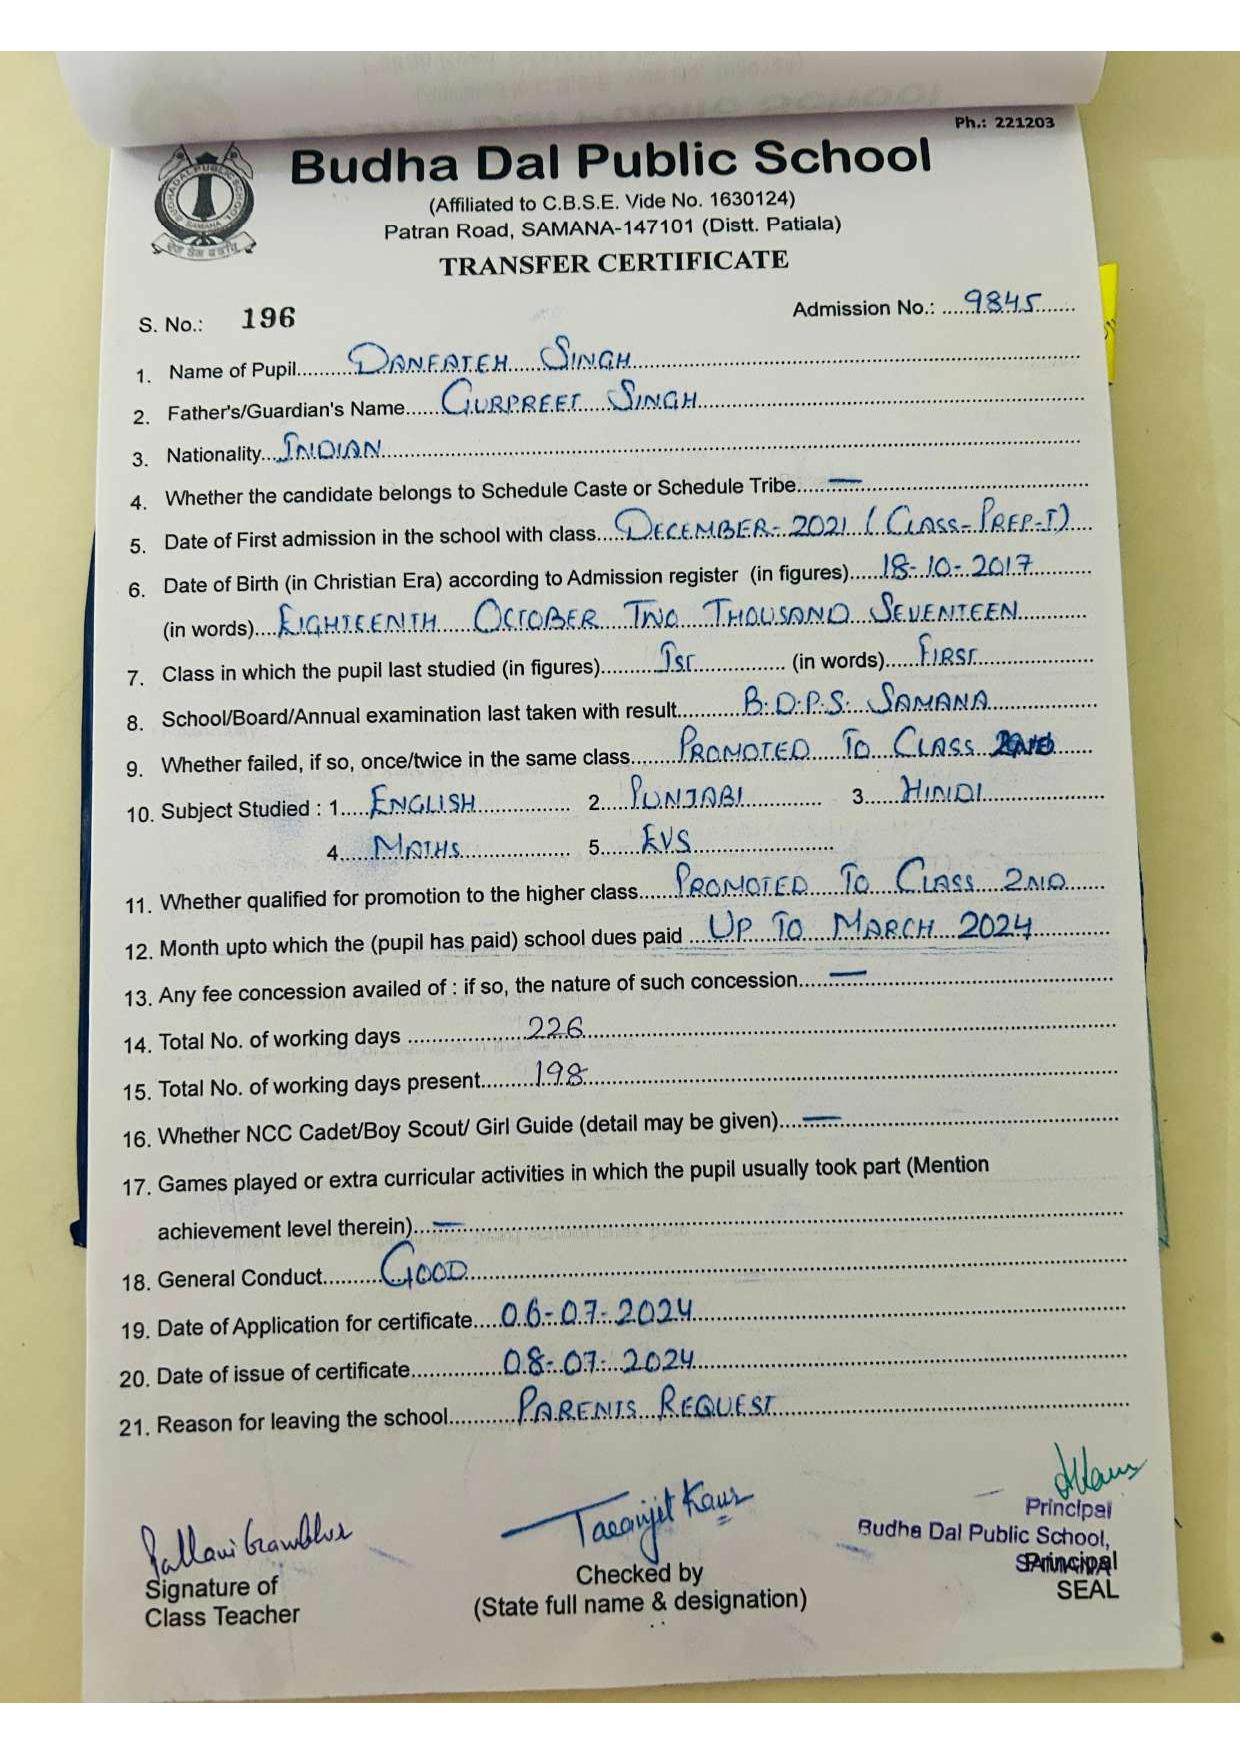 Ph.: 221203
Budha Dal Public School
(Affiliated to C.B.S.E. Vide No. 1630124)
Patran Road, SAMANA-147101 (Distt. Patiala)
TRANSFER CERTIFICATE
S. No.: 196 Admission No.: 9845
1. Name of Pupil DANFATEH SINGH
2. Father's/Guardian's Name GURPREET SINGH
3. Nationality INDIAN
4. Whether the candidate belongs to Schedule Caste or Schedule Tribe —
5. Date of First admission in the school with class DECEMBER-2021 (CLASS-PREP-I)
6. Date of Birth (in Christian Era) according to Admission register (in figures) 18-10-2017
(in words) EIGHTEENTH OCTOBER TWO THOUSAND SEVENTEEN
7. Class in which the pupil last studied (in figures) Ist (in words) FIRST
8. School/Board/Annual examination last taken with result B.D.P.S. SAMANA
9. Whether failed, if so, once/twice in the same class PROMOTED TO CLASS 2ND
10. Subject Studied : 1. ENGLISH 2. PUNJABI 3. HINDI
4. MATHS 5. EVS
11. Whether qualified for promotion to the higher class PROMOTED TO CLASS 2ND
12. Month upto which the (pupil has paid) school dues paid UP TO MARCH 2024
13. Any fee concession availed of : if so, the nature of such concession —
14. Total No. of working days 226
15. Total No. of working days present 198
16. Whether NCC Cadet/Boy Scout/ Girl Guide (detail may be given) —
17. Games played or extra curricular activities in which the pupil usually took part (Mention
achievement level therein) —
18. General Conduct GOOD
19. Date of Application for certificate 06-07-2024
20. Date of issue of certificate 08-07-2024
21. Reason for leaving the school PARENTS REQUEST
Taranjit Kaur
Principal
Budha Dal Public School,
SAMANA
Signature of
Class Teacher
Checked by
(State full name & designation)
Principal
SEAL